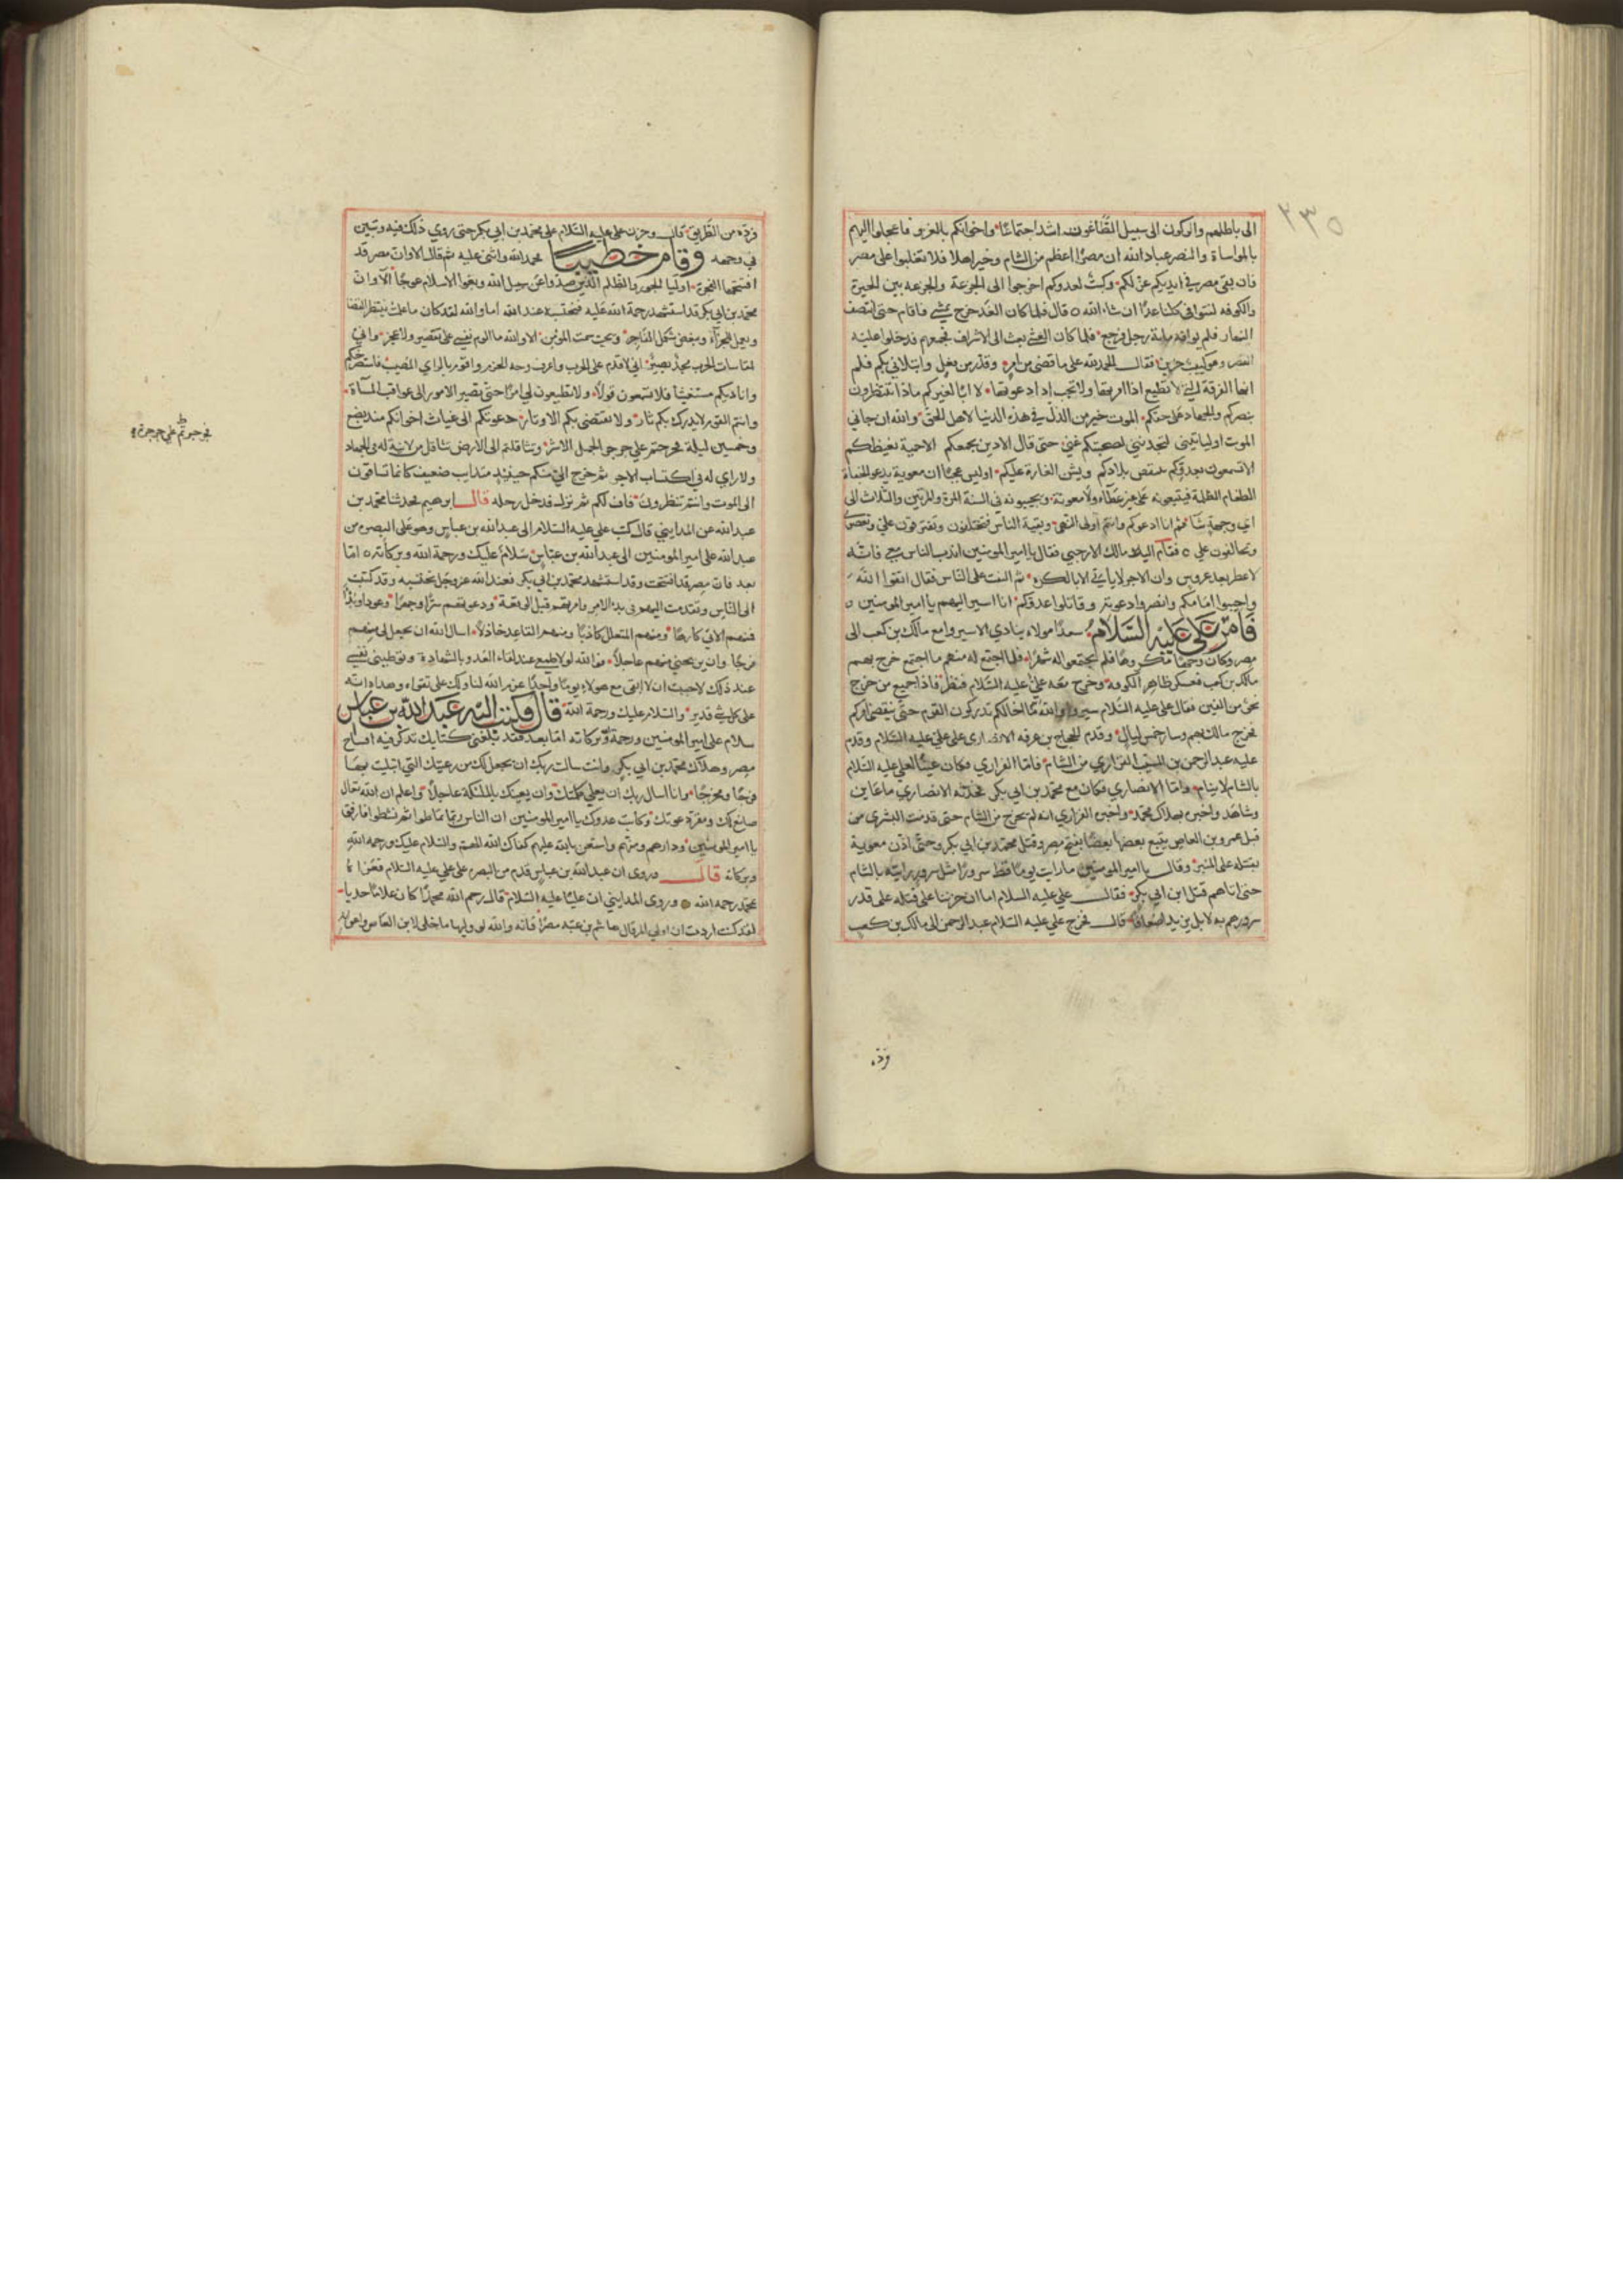 ٢٣٥
الى باطلهم والركون الى سبيل الطاغوت اشد اجتماعًا واخوانكم بالغزو فاعجلوا اليهم
بالمواساة والنصر عباد الله ان مصرًا اعظم من الشام وخير اهلا فلا تغلبوا على مصر
فان بقى مصر في ايديكم عز لكم وكبت لعدوكم اخرجوا الى الجرعة والجرعه بين الحيرة
والكوفه لنتوافى كلنا غدًا ان شاء الله ٥ قال فلما كان الغد خرج يمشي فاقام حتى انتصف
النهار فلم يوافه مايه رجل فرجع فلما كان العشي بعث الى الاشراف فجمعهم فدخلوا عليه
القصر وهو كئيب حزين فقال الحمد لله على ما قضى من امر وقدر من فعل وابتلاني بكم
ايها الفرقة التي لا تطيع اذا امرتها ولا تجيب اذا دعوتها لا ابا لغيركم ماذا تنتظرون
بنصركم والجهاد على حقكم الموت خير من الذل في هذه الدنيا لاهل الحق والله ان جاني
الموت وليأتيني لتجدنني لصحبتكم حتى قال الا دين يجمعكم الا حمية تغيظكم
الا تسمعون بعدوكم ينتقص بلادكم ويشن الغارة عليكم اوليس عجبًا ان معوية يدعو الجفاة
الطغام الظلمة فيتبعونه على غير عطاء ولا معونة ويجيبونه في السنة المرة والمرتين والثلاث الى
اي وجه شا ثم انا ادعوكم وانتم اولى النهى وبقية الناس فتختلفون وتفترقون علي وتعصوني
وتخالفون علي ٥ فقام اليه مالك الارحبي فقال يا امير المومنين اندب الناس معي فانه
لا عطر بعد عروس وان الاجر لا ياتي الا بالكره ثم التفت على الناس فقال اتقوا الله
واجيبوا امامكم وانصروا دعوته وقاتلوا عدوكم انا اسير اليهم يا امير المومنين ٥
فامر علي عليه السلام سعدًا مولاه ينادي الا سيروا مع مالك بن كعب الى
مصر وكان وجهًا مكروهًا فلم يجتمعوا له شهرًا فلما اجتمع له منهم ما اجتمع خرج بهم
مالك بن كعب فعسكر ظاهر الكوفه وخرج معه علي عليه السلام فنظر فاذا جميع من خرج
نحو من الفين فقال علي عليه السلام سيروا والله ما اخالكم تدركون القوم حتى ينقضي امركم
فخرج مالك بهم وسار خمس ليال وقدم الحجاج بن غزيه الانصارى على علي عليه السلام وقدم
عليه عبد الرحمن بن المسيب الفزاري من الشام فاما الفزاري فكان عينًا لعلي عليه السلام
بالشام لا ينام واما الانصاري فكان مع محمد بن ابي بكر فحدثه الانصاري ما عاين
وشاهد واخبره بهلاك محمد واخبره الفزاري انه لم يخرج من الشام حتى قدمت البشرى من
قبل عمرو بن العاص يتبع بعضها بعضًا بفتح مصر وقتل محمد بن ابي بكر وحتى اذن معوية
بقتله على المنبر وقال يا امير المومنين ما رايت يومًا قط سرورًا مثل سرور رايته بالشام
حتى اتاهم قتل ابن ابي بكر فقال علي عليه السلام اما ان حزننا على قتله على قدر
سرورهم به لا بل يزيد اضعافًا قال فخرج علي عليه السلام عبد الرحمن الى مالك بن كعب
فرده
فرده من الطريق قال وحزن علي عليه السلام على محمد بن ابي بكر حتى روي ذلك فيه وتبين
في وجهه وقام خطيبًا فحمد الله واثنى عليه ثم قال الا وان مصر قد
افتتحها الفجرة اوليا الجور والظلم الذين صدوا عن سبيل الله وبغوا الاسلام عوجًا الا وان
محمد بن ابي بكر قد استشهد رحمة الله عليه فنحتسبه عند الله اما والله لقد كان ما علمت ينتظر القضا
ويعمل للجزآء ويبغض شكل الفاجر ويحب سمت المؤمن الا والله ما الوم نفسي على تقصير ولا عجز واني
لمقاسات الحرب مجد بصير اني لاقدم على الحرب واعرف وجه الحزم واقوم بالراي المصيب فاستصرخكم
واناديكم مستغيثًا فلا تسمعون قولًا ولا تطيعون لي امرًا حتى تصير الامور الى عواقب المسآة
وانتم القوم لا يدرك بكم ثار ولا تنقضى بكم الاوتار دعوتكم الى غياث اخوانكم منذ بضع
وخمسين ليلة فجرجرتم علي جرجرة الجمل الاسر وتثاقلتم الى الارض تثاقل من لا نية له في الجهاد
ولا راي له في اكتساب الاجر ثم خرج الي منكم جنيد متذايب ضعيف كانما تساقون
الى الموت وانتم تنظرون فاف لكم ثم نزل فدخل رحله قال ابرهيم فحدثنا محمد بن
عبد الله عن المدايني قال كتب علي عليه السلام الى عبد الله بن عباس وهو على البصره من
عبد الله علي امير المومنين الى عبد الله بن عباس سلام عليك ورحمة الله وبركاته ٥ اما
بعد فان مصر قد افتتحت وقد استشهد محمد بن ابي بكر فعند الله عز وجل نحتسبه وقد كتبت
الى الناس وتقدمت اليهم في بدء الامر وامرتهم قبل الوقعة ودعوتهم سرًا وجهرًا وعودًا وبدءًا
فمنهم الاتي كارهًا ومنهم المتعلل كاذبًا ومنهم القاعد خاذلًا اسال الله ان يجعل لي منهم
فرجًا وان يريحني منهم عاجلًا فوالله لولا طمعي عند لقاء العدو بالشهادة وتوطيني نفسي
عند ذلك لاحببت ان لا ابقى مع هولاء يومًا واحدًا عزم الله لنا ولك على تقواه وهداه انه
على كل شي قدير والسلام عليك ورحمة الله قال فكتب اليه عبد الله بن عباس
سلام على امير المومنين ورحمة الله وبركاته اما بعد فقد بلغني كتابك تذكر فيه افتتاح
مصر وهلاك محمد بن ابي بكر وانت سالت ربك ان يجعل لك من رعيتك التي ابتليت بها
فرجًا ومخرجًا وانا اسال ربك ان يعلي كلمتك وان يعينك بالملئكة عاجلًا واعلم ان الله تعال
صانع لك ومعز دعوتك وكابت عدوك يا امير المومنين ان الناس ربما تباطوا ثم نشطوا فارفق
يا امير المومنين ودارهم ومنهم واستعن بالله عليهم كفاك الله المهم والسلام عليك ورحمه الله
وبركاته قال وروى ان عبد الله بن عباس قدم من البصره على علي عليه السلام فعزاه
بمحمد رحمه الله ٥ وروى المدايني ان عليًا عليه السلام قال رحم الله محمدًا كان غلامًا حدثا
لقد كنت اردت ان اولي المرقال هاشم بن عتبه مصرًا فانه والله لو وليها ما خلى لابن العاص واعوانه
فجرجرتم علي جرجرة